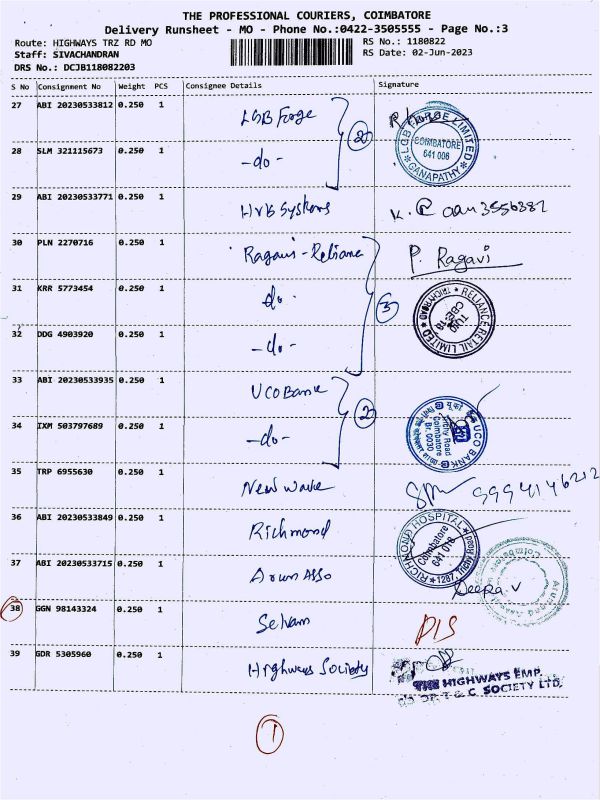 THE PROFESSIONAL COURIERS, COIMBATORE
Delivery Runsheet - MO - Phone No.:0422-3505555 - Page No.:3
Route: HIGHWAYS TRZ RD MO
RS No.: 1180822
Staff: SIVACHANDRAN
RS Date: 02-Jun-2023
DRS No.: DCJB118082203
S No Consignment No Weight PCS Consignee Details Signature
27 ABI 20230533812 0.250 1 LGB Forge
L.G.B. FORGE LIMITED COIMBATORE 641 006 GANAPATHY
28 SLM 321115673 0.250 1 -do- 2
29 ABI 20230533771 0.250 1 HVB Systems
30 PLN 2270716 0.250 1 Ragavi - Reliance P. Ragavi
31 KRR 5773454 0.250 1 do -
RELIANCE RETAIL LIMITED TRICHY ROAD
32 DDG 4903920 0.250 1 -do- 3
33 ABI 20230533935 0.250 1 UCO Bank
34 IXM 503797689 0.250 1 -do- 2
UCO BANK Trichy Road Coimbatore Br. 0030
35 TRP 6955630 0.250 1 New wave 9994146212
36 ABI 20230533849 0.250 1 Richmond
RICHMOND HOSPITAL Coimbatore 641 018 1287, Trichy Road
37 ABI 20230533715 0.250 1 Arun Asso Deepa. V
38 GGN 98143324 0.250 1 Selvam DIS
39 GDR 5305960 0.250 1 Highways Society
THE HIGHWAYS EMP.
T & C SOCIETY LTD.
1